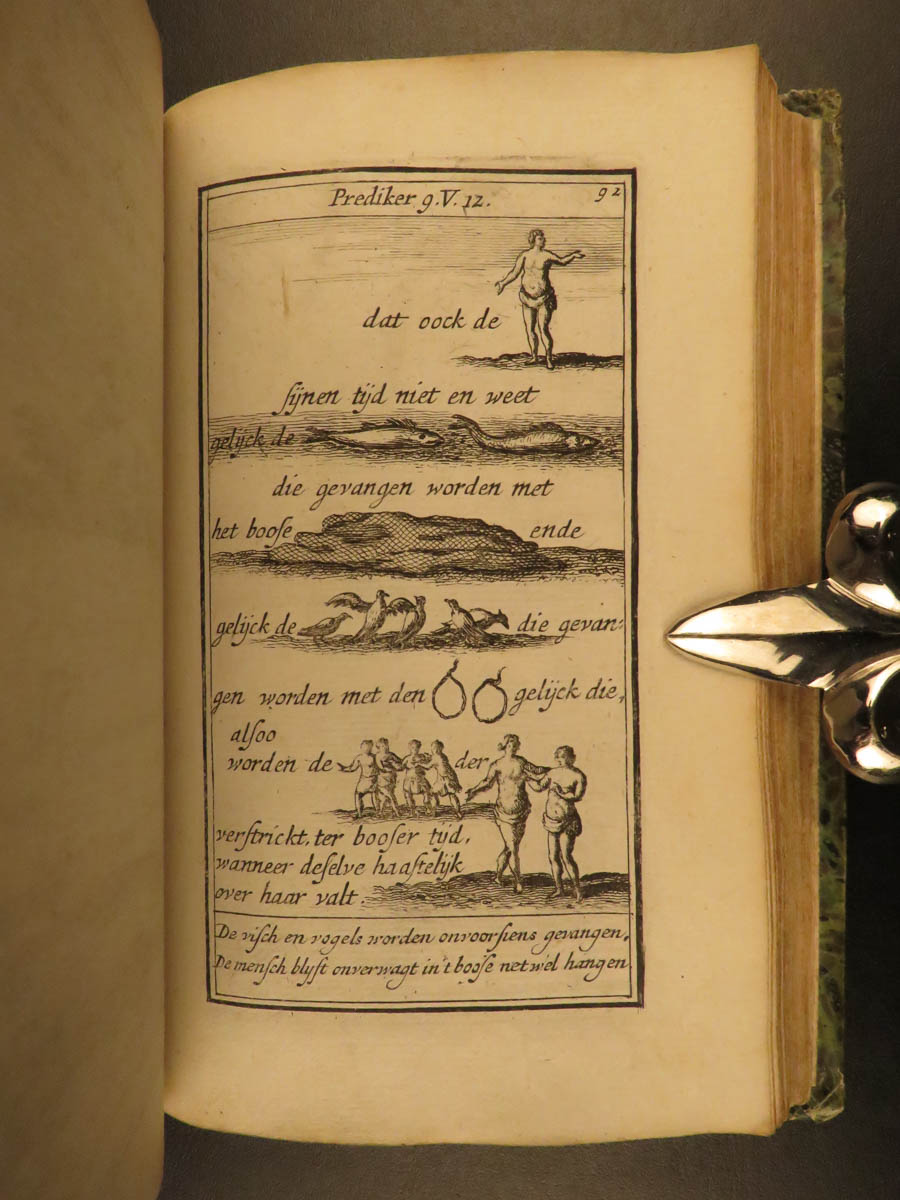 Prediker 9. V. 12. 92
dat oock de
sijnen tijd niet en weet
gelijck de
die gevangen worden met
het boose ende
gelijck de die gevan:
gen worden met den gelijck die,
alsoo
worden de der
verstrickt, ter booser tijd,
wanneer deselve haastelijk
over haar valt.
De visch en vogels worden onvoorsiens gevangen,
De mensch blyft onverwagt in't boose net wel hangen